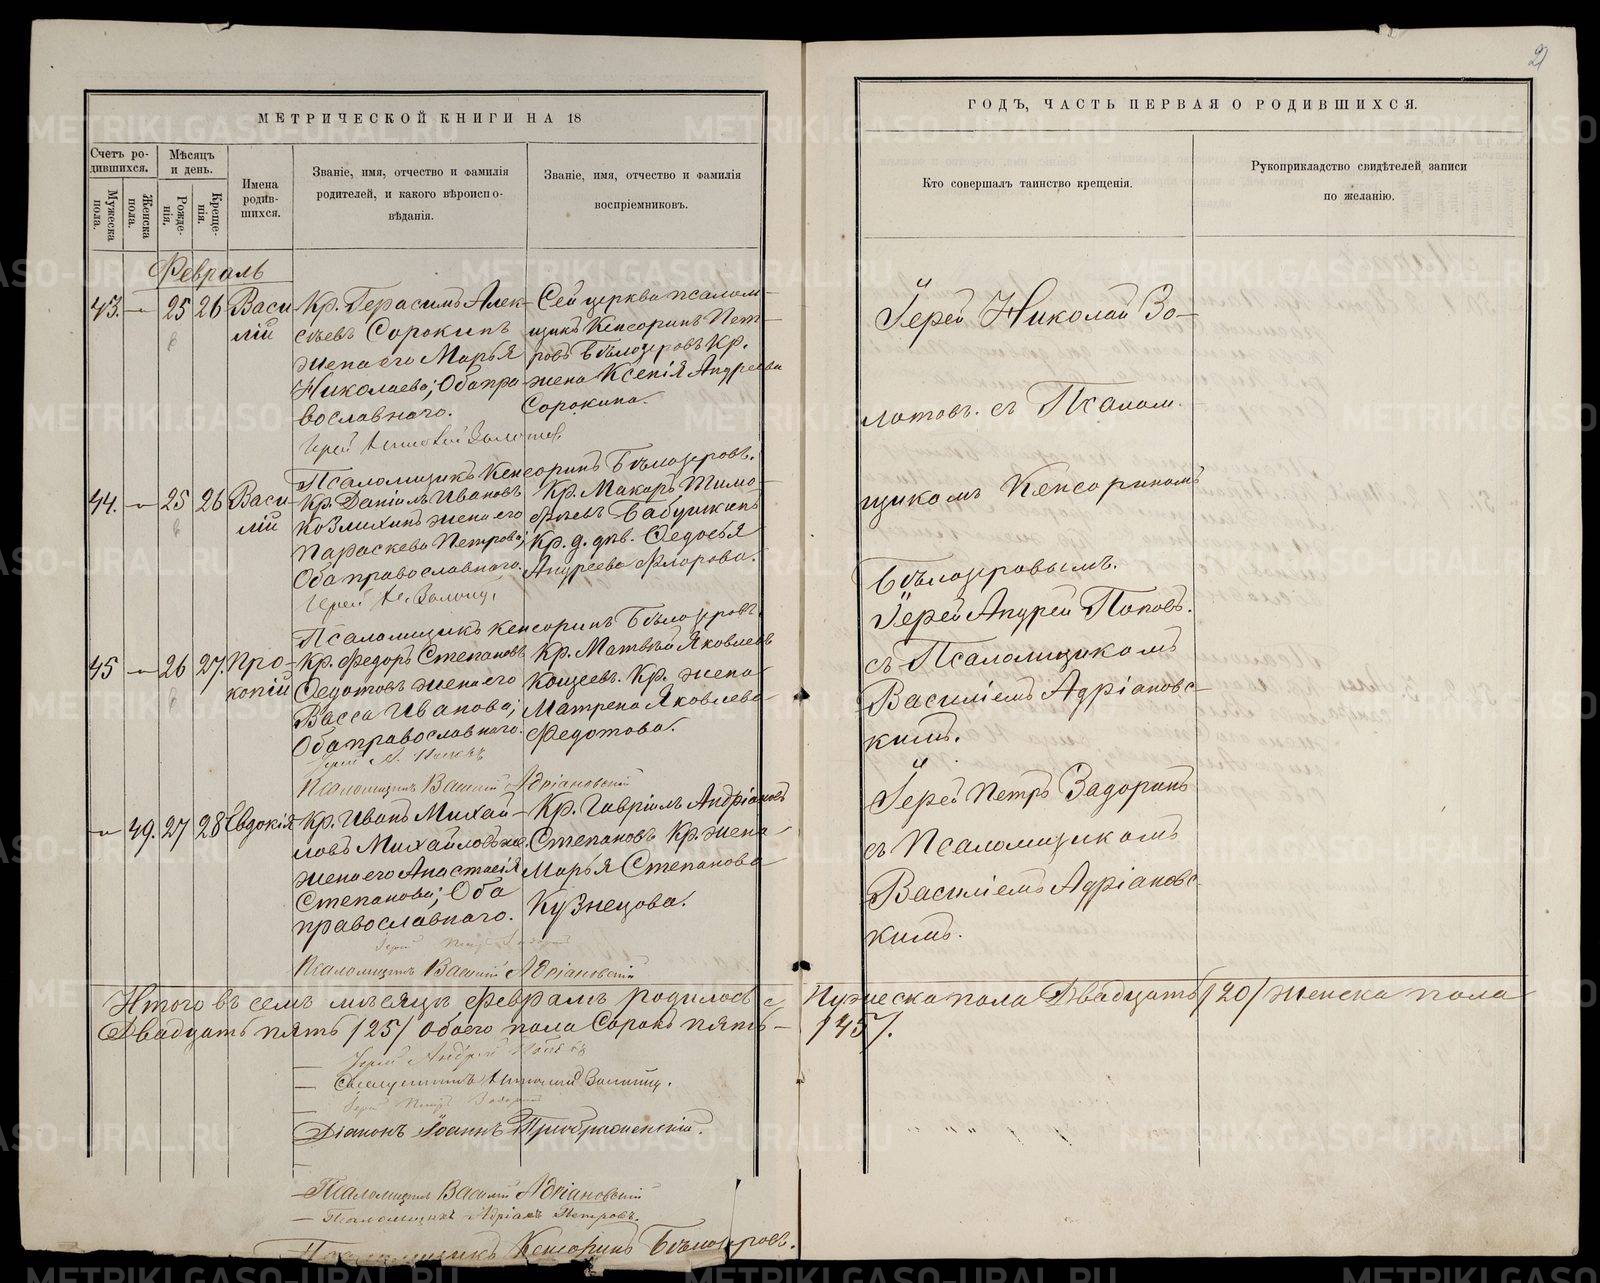 21
МЕТРИЧЕСКОЙ КНИГИ НА 18
Счетъ ро-
дившихся.
Мужеска
пола.
Женска
пола.
Мѣсяцъ
и день.
Рожде-
нія.
Креще-
нія.
Имена
родив-
шихся.
Званіе, имя, отчество и фамилія
родителей, и какого вѣроиспо-
вѣданія.
Званіе, имя, отчество и фамилія
воспріемниковъ.
Февраль
43. — 25 26 Васи
лій
Кр. Герасимъ Алек-
сѣевъ Сорокинъ
жена его Марья
Николаева; Оба пра-
вославнаго.
Сей церкви псалом-
щикъ Кенсоринъ Пет-
ровъ Бѣлозеровъ Кр.
жена Ксенія Андреева
Сорокина.
Іерей Николай Золотовъ
Псаломщикъ Кенсоринъ Бѣлозеровъ.
44. — 25 26 Васи
лій
Кр. Даніилъ Ивановъ
Козлихинъ жена его
Параскева Петрова;
Оба православнаго.
Кр. Макаръ Тимо-
фѣевъ Бабушкинъ
Кр. д. дѣв. Федосья
Андреева Флорова.
Іерей Н. Золотовъ
Псаломщикъ Кенсоринъ Бѣлозеровъ.
45 — 26 27. Про-
копій
Кр. Федоръ Степановъ
Федотовъ жена его
Васса Иванова;
Оба православнаго.
Кр. Матвѣй Яковлевъ
Кощеевъ. Кр. жена
Матрена Яковлева
Федотова.
Іерей А. Поповъ
Псаломщикъ Василій Адріановскій
— 49. 27 28 Евдокія
Кр. Иванъ Михай-
ловъ
женаего Анастасія
Степанова; Оба
православнаго.
Кр. Гавріилъ Андріановъ
Степановъ Кр. жена
Марья Степанова
Кузнецова.
Іерей Петръ Задоринъ
Псаломщикъ Василій Адріановскій
Итого въ семъ мѣсяцѣ февралѣ родилось
Двадцать пять /25/ обоего пола Сорокъ пять —
Іерей Андрей Поповъ
Священникъ Николай Золотовъ.
Іерей Петръ Задоринъ
Діаконъ Іоаннъ Преображенскій.
— Псаломщикъ Василій Адріановскій
— Псаломщикъ Адріанъ Петровъ.
Псаломщикъ Кенсоринъ Бѣлозеровъ.
ГОДЪ, ЧАСТЬ ПЕРВАЯ О РОДИВШИХСЯ.
Кто совершалъ таинство крещенія.
Рукоприкладство свидѣтелей записи
по желанію.
Іерей Николай Зо-
лотовъ. съ Псалом.
щикомъ Кенсориномъ
Бѣлозеровымъ.
Іерей Андрей Поповъ.
съ Псаломщикомъ
Василіемъ Адріановс-
кимъ.
Іерей Петръ Задоринъ
съ Псаломщикомъ
Василіемъ Адріановс-
кимъ.
Мужеска пола Двадцать /20/ женска пола
/45/.
METRIKI.GASO-URAL.RU